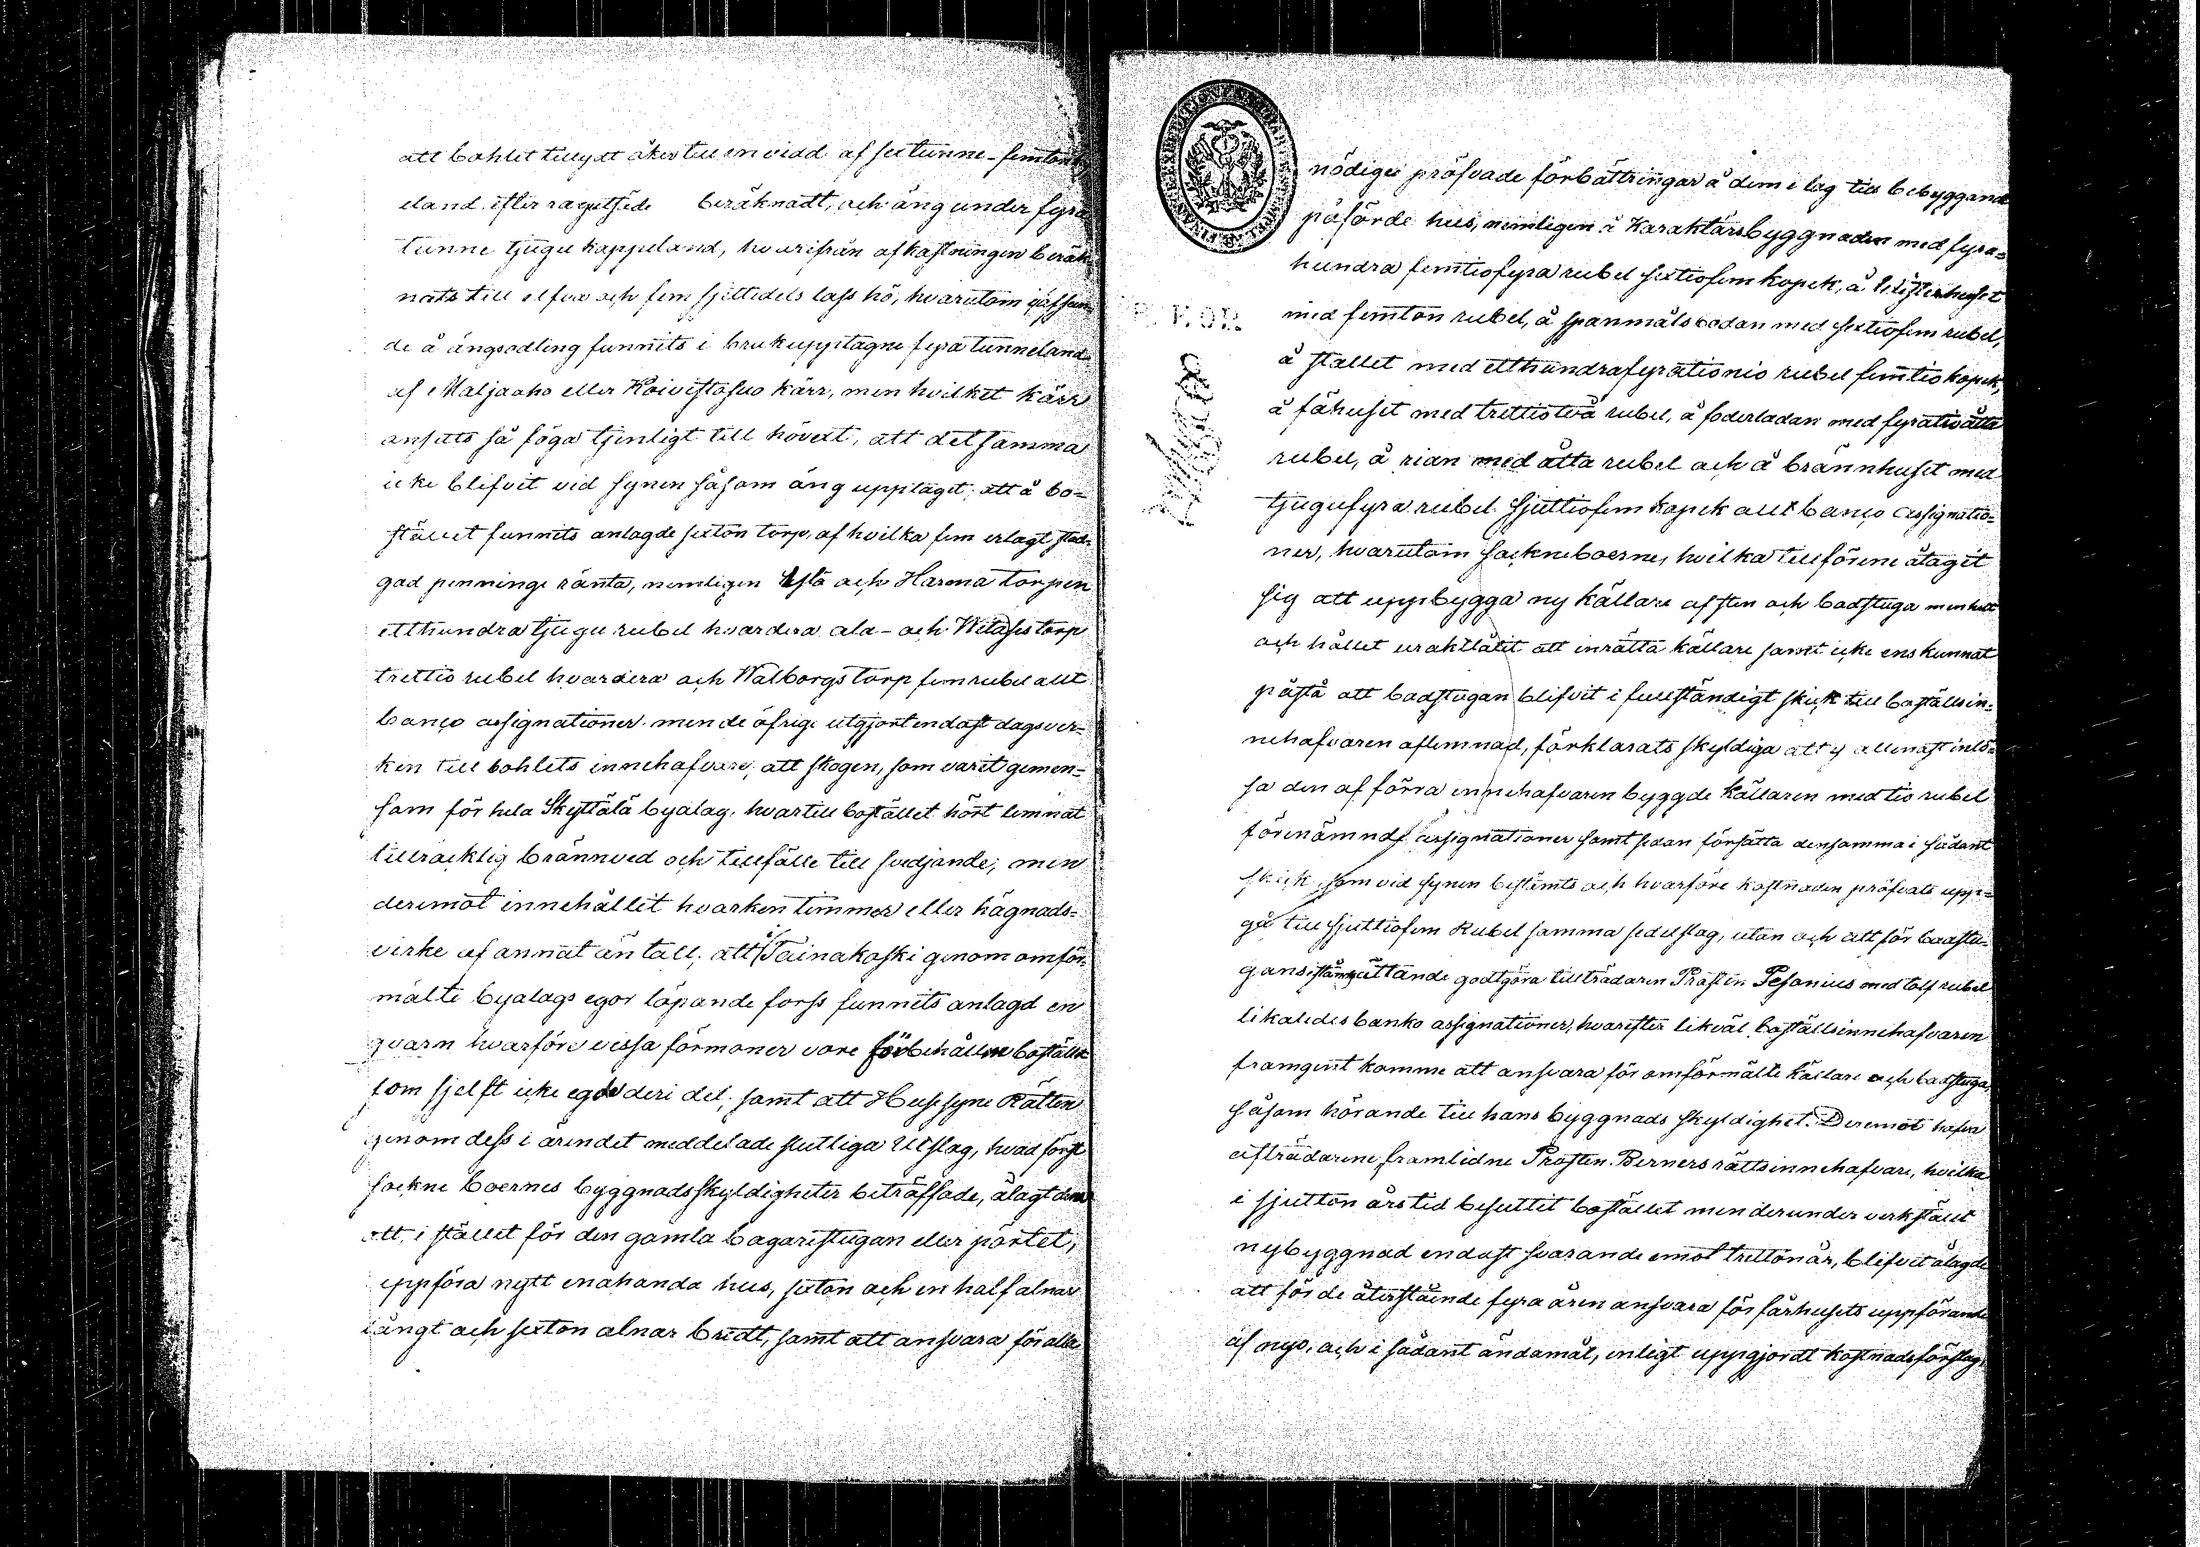 att bohlet tillydt åker till en vidd af sex tunne- femton kapp-
eland efter ragutsäde beräknadt, och äng under fyra
tunne tjugu kappeland, hvarifrån afkastningen beräk-
nats till elfva och fem sjettedels lass hö, hvarutom i
de å ängsodling funnits i bruk upptagne fyra tunneland
af Maljaoho eller Koivistosuo kärr, men hvilket kärr
ansetts så föga tjenligt till hövext, att detsamma
icke blifvit vid synen såsom äng upptaget; att å bo=
stället funnits anlagde sexton torp, af hvilka fem erlagt stad-
gad penninge ränta, nemligen och Harma torpen
etthundra tjugu rubel hvardera ala- och torp
trettio rubel hvardera och Walborgs torp fem rubel allt
banco assignationer, men de öfrige utgjort endast dagsver=
ken till bohlets innehafvare; att skogen, som varit gemen=
sam för hela Skyttälä byalag, hvartill bostället hört lemnat
tillräcklig brännved och tillfälle till svedjande; men
deremot innehållit hvarken timmer eller hägnads=
virke af annat än tall; att i Tainakoski genom omför-
mälte byalags egor löpande forss funnits anlagd en
qvarn hvarföre vissa förmoner vore förbehållne bostället
som sjelft icke egde deri del; samt att Husesyne Rätten
genom dess i ärendet meddelade slutliga Utslag, hvad först
sockne boernes byggnadsskyldigheter beträffade, ålagt dem
att, i stället för den gamla bagarestugan eller pörtet,
uppföra nytt enahanda hus, sexton och en half alnar
långt och sexton alnar bredt, samt att ansvara för alla
nödige pröfvade förbättringar å dem i lag till bebyggand
påförde hus, nemligen å Karaktärsbyggnaden med fyra=
hundra femtiofyra rubel sextiofem kopek, å
med femton rubel, å spanmålsbodan med sextiofem rubel,
å stallet med etthundrafyrationio rubel femtio kopek,
å fähuset med trettiotvå rubel, å foderladan med fyratioåtta
rubel, å rian med åtta rubel och å brännhuset med
tjugufyra rubel sjuttiofem kopek allt banco assignatio=
ner, hvarutom sockneboerne, hvilka tillförene åtagit
sig att uppbygga ny källare af sten och badstuga men helt
och hållet uraktlåtit att inrätta källare samt icke ens kunnat
påstå att badstugan blifvit i fullständigt skick till boställsin=
nehafvaren aflemnad, förklarats skyldiga att ej allenast inlö=
sa den af förra innehafvaren byggde källaren med tio rubel
förenämnde assignationer samt sedan försätta densamma i sådant
skick, som vid synen bestämts och hvarföre kostnaden pröfvats upp=
gå till sjuttiofem Rubel samma sedelslag, utan och att för badstu=
gans godtgöra tillträdaren Prosten Pesonius med tolf rubel
likaledes banko assignationer, hvarefter likväl boställsinnehafvaren
framgent komme att ansvara för omförmälte källare och badstuga,
såsom hörande till hans byggnads skyldighet. Deremot hafva
afträdarene, framlidne Prosten Berners rättsinnehafvare, hvilka
i sjutton års tid besuttit bostället men derunder verkställt
nybyggnad endast svarande emot tretton år, blifvit ålagde
att för de återstående fyra åren ansvara för fårhusets uppförande
af nyo, och i sådant ändamål, enligt uppgjordt kostnadsförslag,